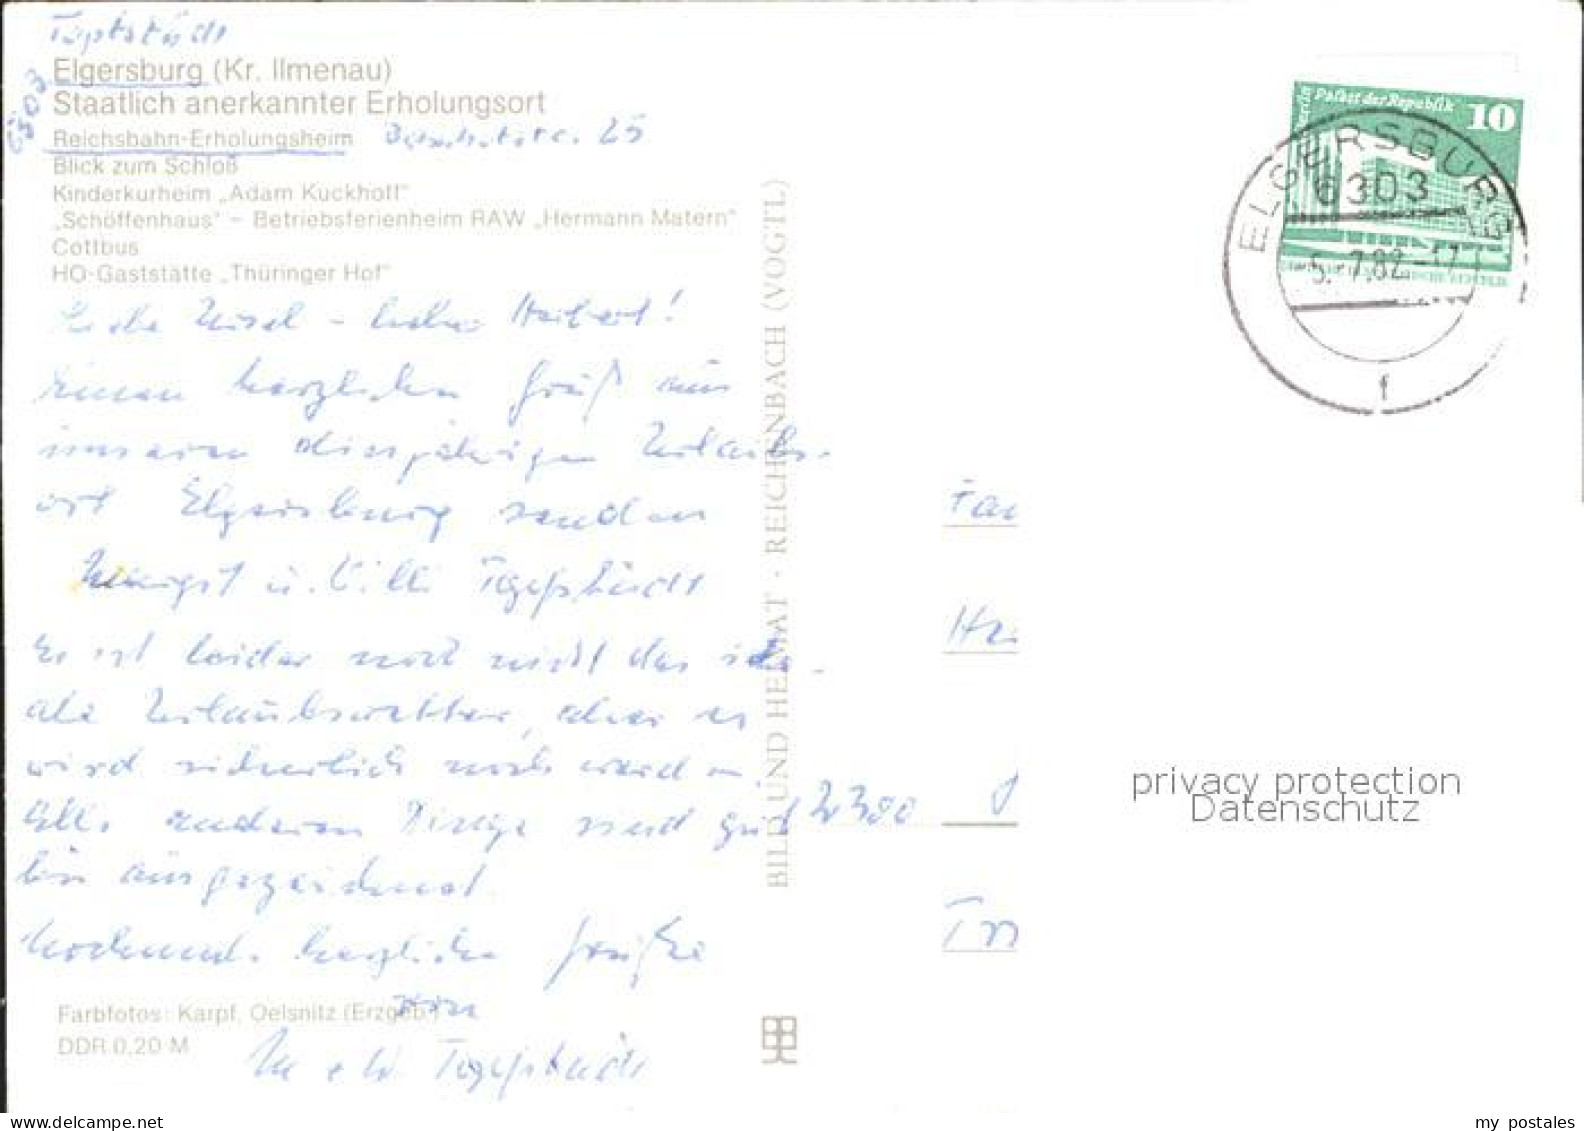 Elgersburg (Kr. Ilmenau)
Staatlich anerkannter Erholungsort
6303
Reichsbahn-Erholungsheim Bahnhofstr. 25
Blick zum Schloß
Kinderkurheim „Adam Kuckhoff"
„Schöffenhaus" – Betriebsferienheim RAW „Hermann Matern"
Cottbus
HO-Gaststätte „Thüringer Hof"
Liebe Ursel - lieber Herbert!
Einen herzlichen Gruß aus
unseren diesjährigen Urlaubs-
ort Elgersburg senden
u. Willi
Es ist leider noch nicht das ide-
ale Urlaubswetter, aber es
wird sicherlich noch werden.
Alle anderen Dinge sind gut
bis ausgezeichnet.
Nochmals herzliche Grüße
von
Farbfotos: Karpf, Oelsnitz (Erzgeb.)
DDR 0,20 M
M + W
BILD UND HEIMAT · REICHENBACH (VOGTL)
Berlin Palast der Republik 10
ELGERSBURG
6303
5.-7.82-17
f
Fam
privacy protection
Datenschutz
my postales